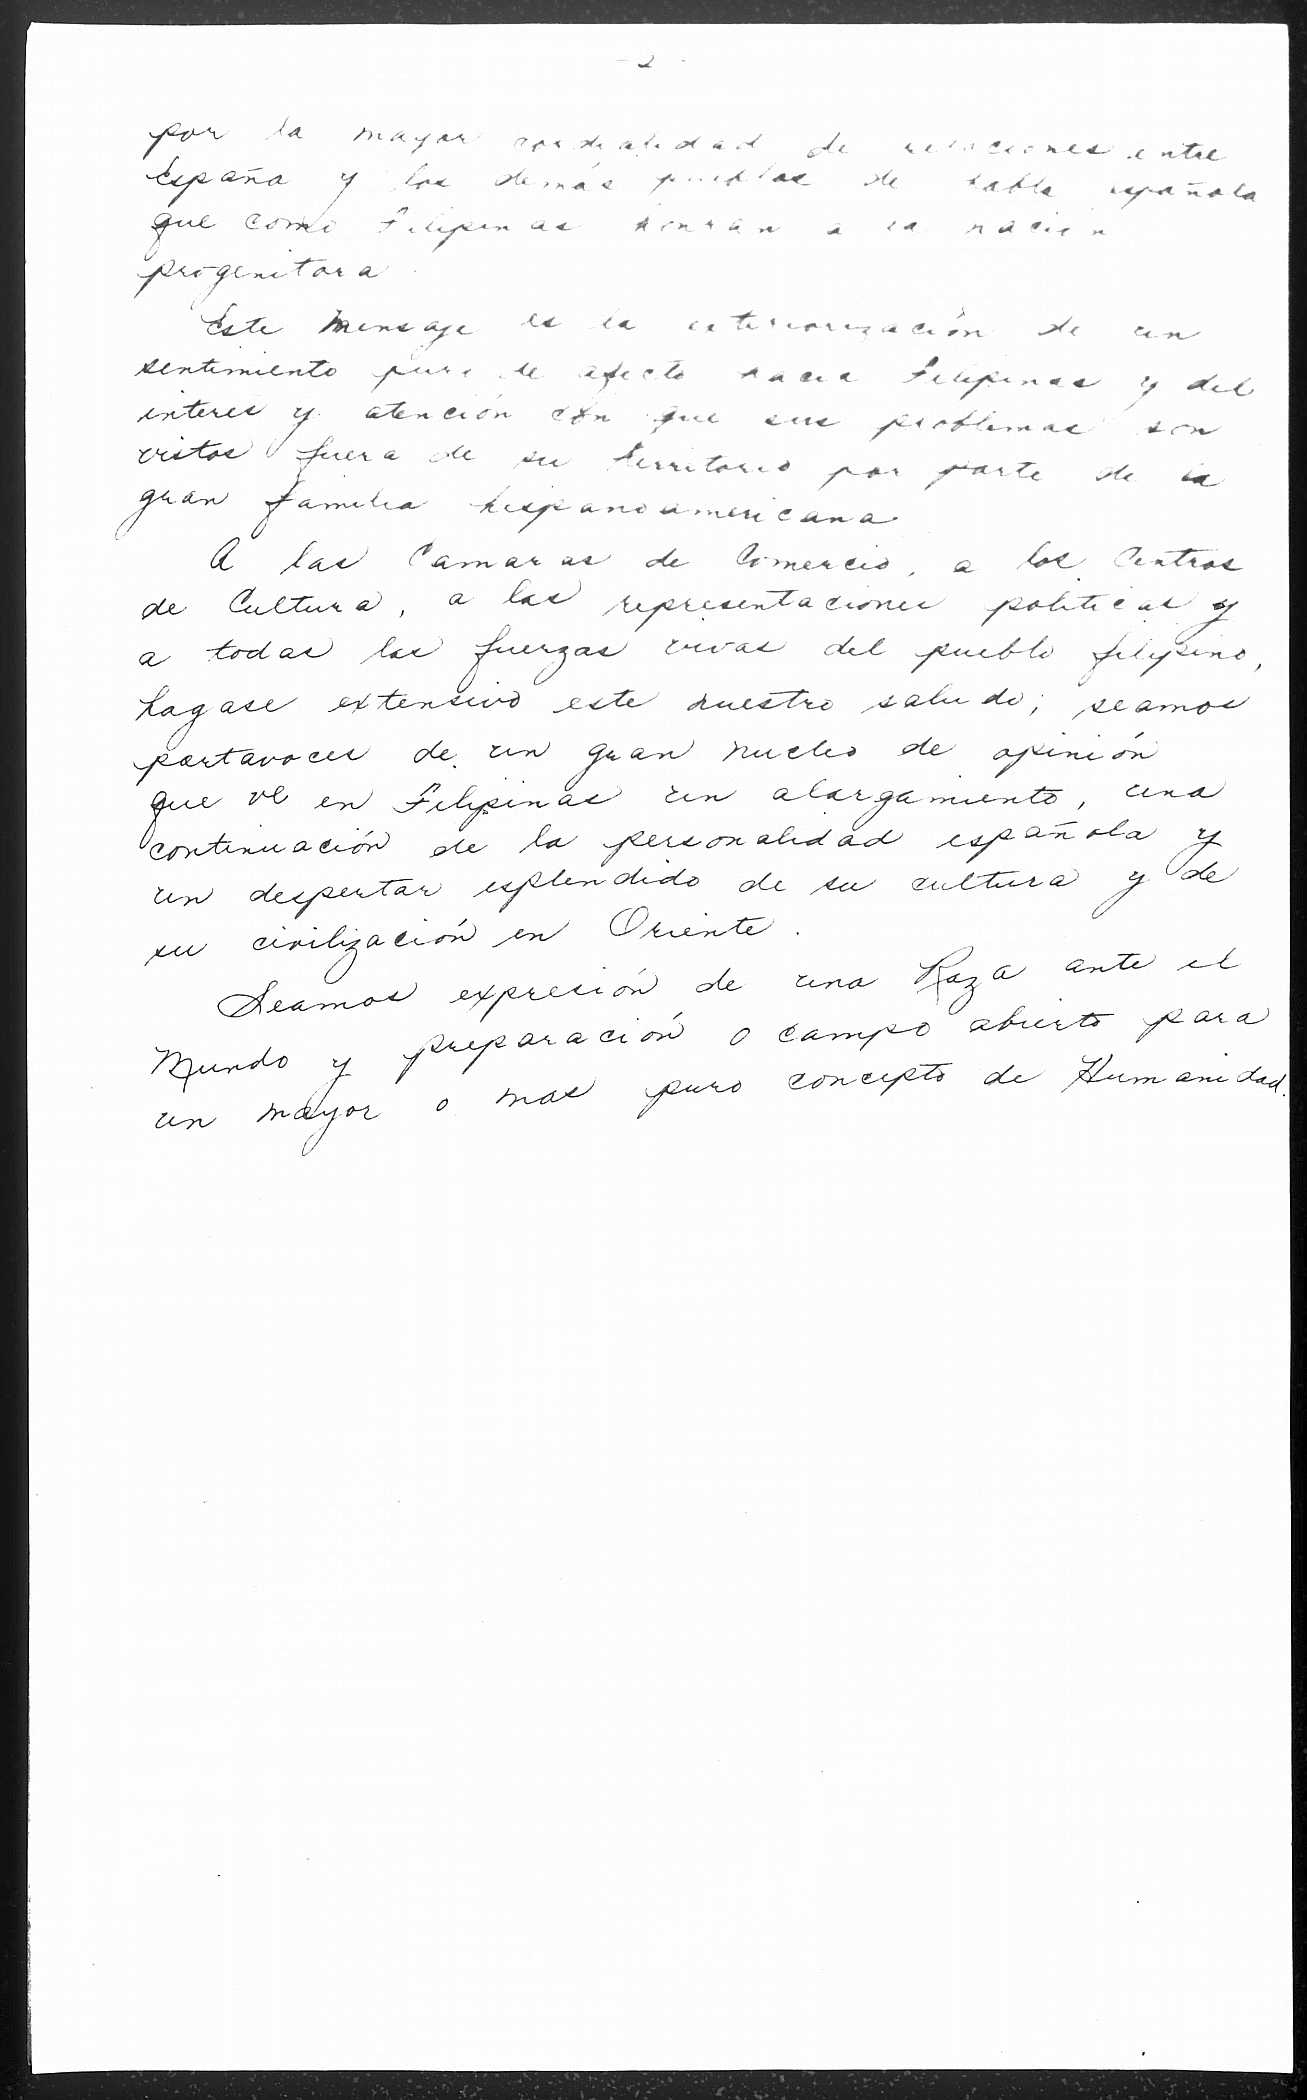 - 2 -
por la mayor cordialidad de relaciones entre
España y los demás pueblos de habla española
que como Filipinas honran a la nación
progenitora
Este Mensaje es la exteriorización de un
sentimiento puro de afecto hacia Filipinas y del
interes y atención con que sus problemas son
vistos fuera de su territorio por parte de la
gran familia hispanoamericana.
A las Camaras de Comercio, a los Centros
de Cultura, a las representaciones politicas y
a todas las fuerzas vivas del pueblo filipino,
hagase extensivo este nuestro saludo; seamos
portavoces de un gran nucleo de opinión
que ve en Filipinas un alargamiento, una
continuación de la personalidad española y
un despertar esplendido de su cultura y de
su civilización en Oriente.
Seamos expresión de una Raza ante el
Mundo y preparación o campo abierto para
un mayor o mas puro concepto de Humanidad.